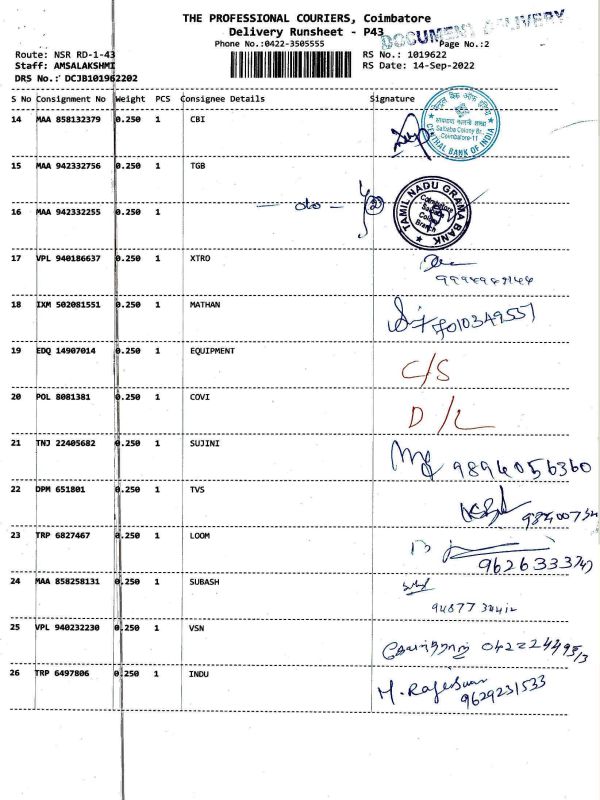 THE PROFESSIONAL COURIERS, Coimbatore
Delivery Runsheet - P43
DOCUMENT DELIVERY
Phone No.:0422-3505555
Page No.:2
Route: NSR RD-1-43
RS No.: 1019622
Staff: AMSALAKSHMI
RS Date: 14-Sep-2022
DRS No.: DCJB101962202
S No Consignment No Weight PCS Consignee Details Signature
14 MAA 858132379 0.250 1 CBI
सेन्ट्रल बैंक ऑफ इंडिया
Saibaba Colony Br.
Coimbatore-11
CENTRAL BANK OF INDIA
15 MAA 942332756 0.250 1 TGB
TAMIL NADU GRAMA BANK
Coimbatore
Saibaba
Colony
Branch
— do —
16 MAA 942332255 0.250 1
17 VPL 940186637 0.250 1 XTRO
18 IXM 502081551 0.250 1 MATHAN
7010349557
19 EDQ 14907014 0.250 1 EQUIPMENT
C/S
20 POL 8081381 0.250 1 COVI
D/L
21 TNJ 22405682 0.250 1 SUJINI
9894056360
22 DPM 651801 0.250 1 TVS
23 TRP 6827467 0.250 1 LOOM
24 MAA 858258131 0.250 1 SUBASH
25 VPL 940232230 0.250 1 VSN
26 TRP 6497806 0.250 1 INDU
M. Rajeswari
9629231533